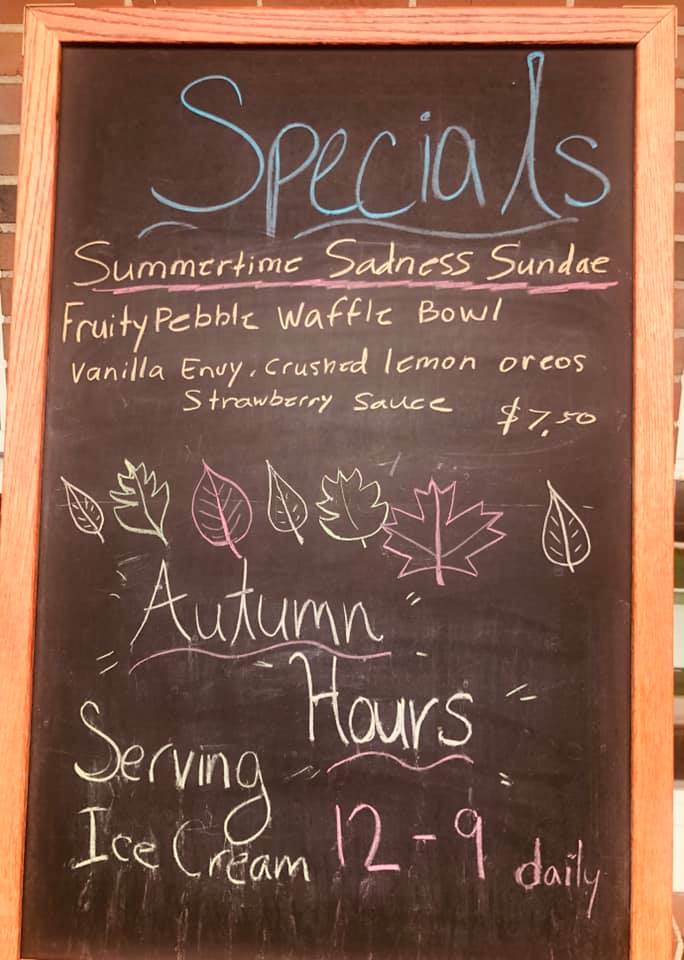 Specials
Summertime Sadness Sundae
Fruity Pebble Waffle Bowl
Vanilla Envy, Crushed lemon oreos
Strawberry Sauce $7.50
Autumn
Hours
Serving
Ice Cream 12-9 daily